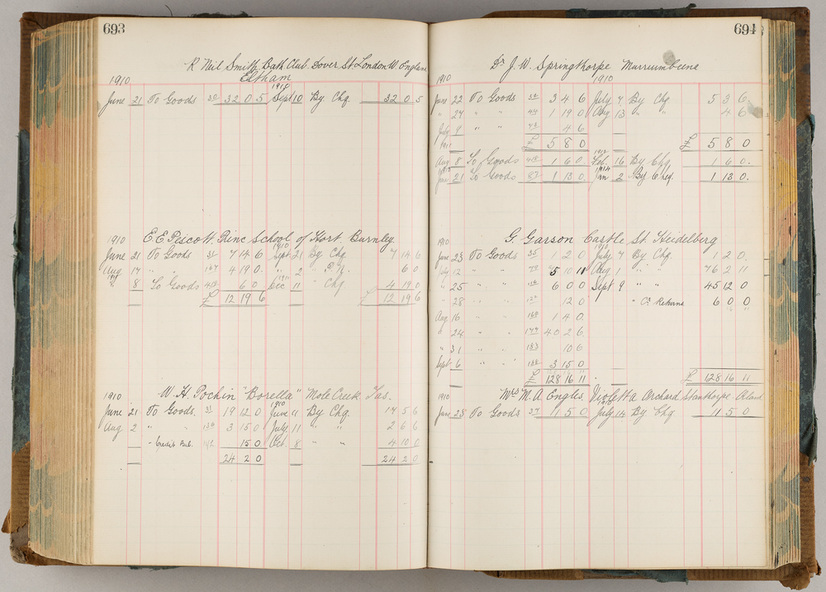 693
R Neil Smith Bath Club Dover St London W. England
Eltham
1910 1910
June 21 To Goods 32 0 5 Sept 10 By Chq 32 0 5
1910 E. E. Pescott Princ School of Hort Burnley
1910
June 21 To Goods 7 14 6 Sept 21 By Chq 7 14 6
Aug 17 " " 4 19 0 " 2 " 6 0
8 To Goods 6 0 Dec 11 " Chq 4 19 0
£ 12 19 6 £ 12 19 6
1910 W. H. Pochin "Borella" Mole Creek Tas.
1910
June 21 To Goods 19 12 0 June 11 By Chq 14 5 6
Aug 2 " " 3 15 0 July 11 " " 2 6 6
15 0 Oct 8 " " 4 10 0
24 2 0 24 2 0
694
Dr J. W. Springthorpe Murrumbeena
1910 1910
June 22 To Goods 3 4 6 July 7 By Chq 5 3 6
" 27 " " 1 19 0 Aug 13 " " 4 6
July 8 " " 4 6
£ 5 8 0 £ 5 8 0
Aug 8 To Goods 1 6 0 Feb 16 By Chq 1 6 0
21 To Goods 1 13 0 Jan 2 By Cheq 1 13 0
1910 G. Garson Castle St Heidelberg
1910
June 23 To Goods 1 2 0 July 7 By Chq 1 2 0
12 " " 75 10 11 Aug 1 " " 76 2 11
" 25 " " 6 0 0 Sept 9 " " 45 12 0
" 28 " " 12 0 " Cr Returns 6 0 0
Aug 16 " " 1 4 0
" 24 " " 40 2 6
" 31 " " 10 6
Sept 6 " " 3 15 0
£ 128 16 11 £ 128 16 11
1910 Mrs M. A. Engles Violetta Orchard Stanthorpe Qland
1910
June 25 To Goods 11 5 0 July 14 By Chq 11 5 0